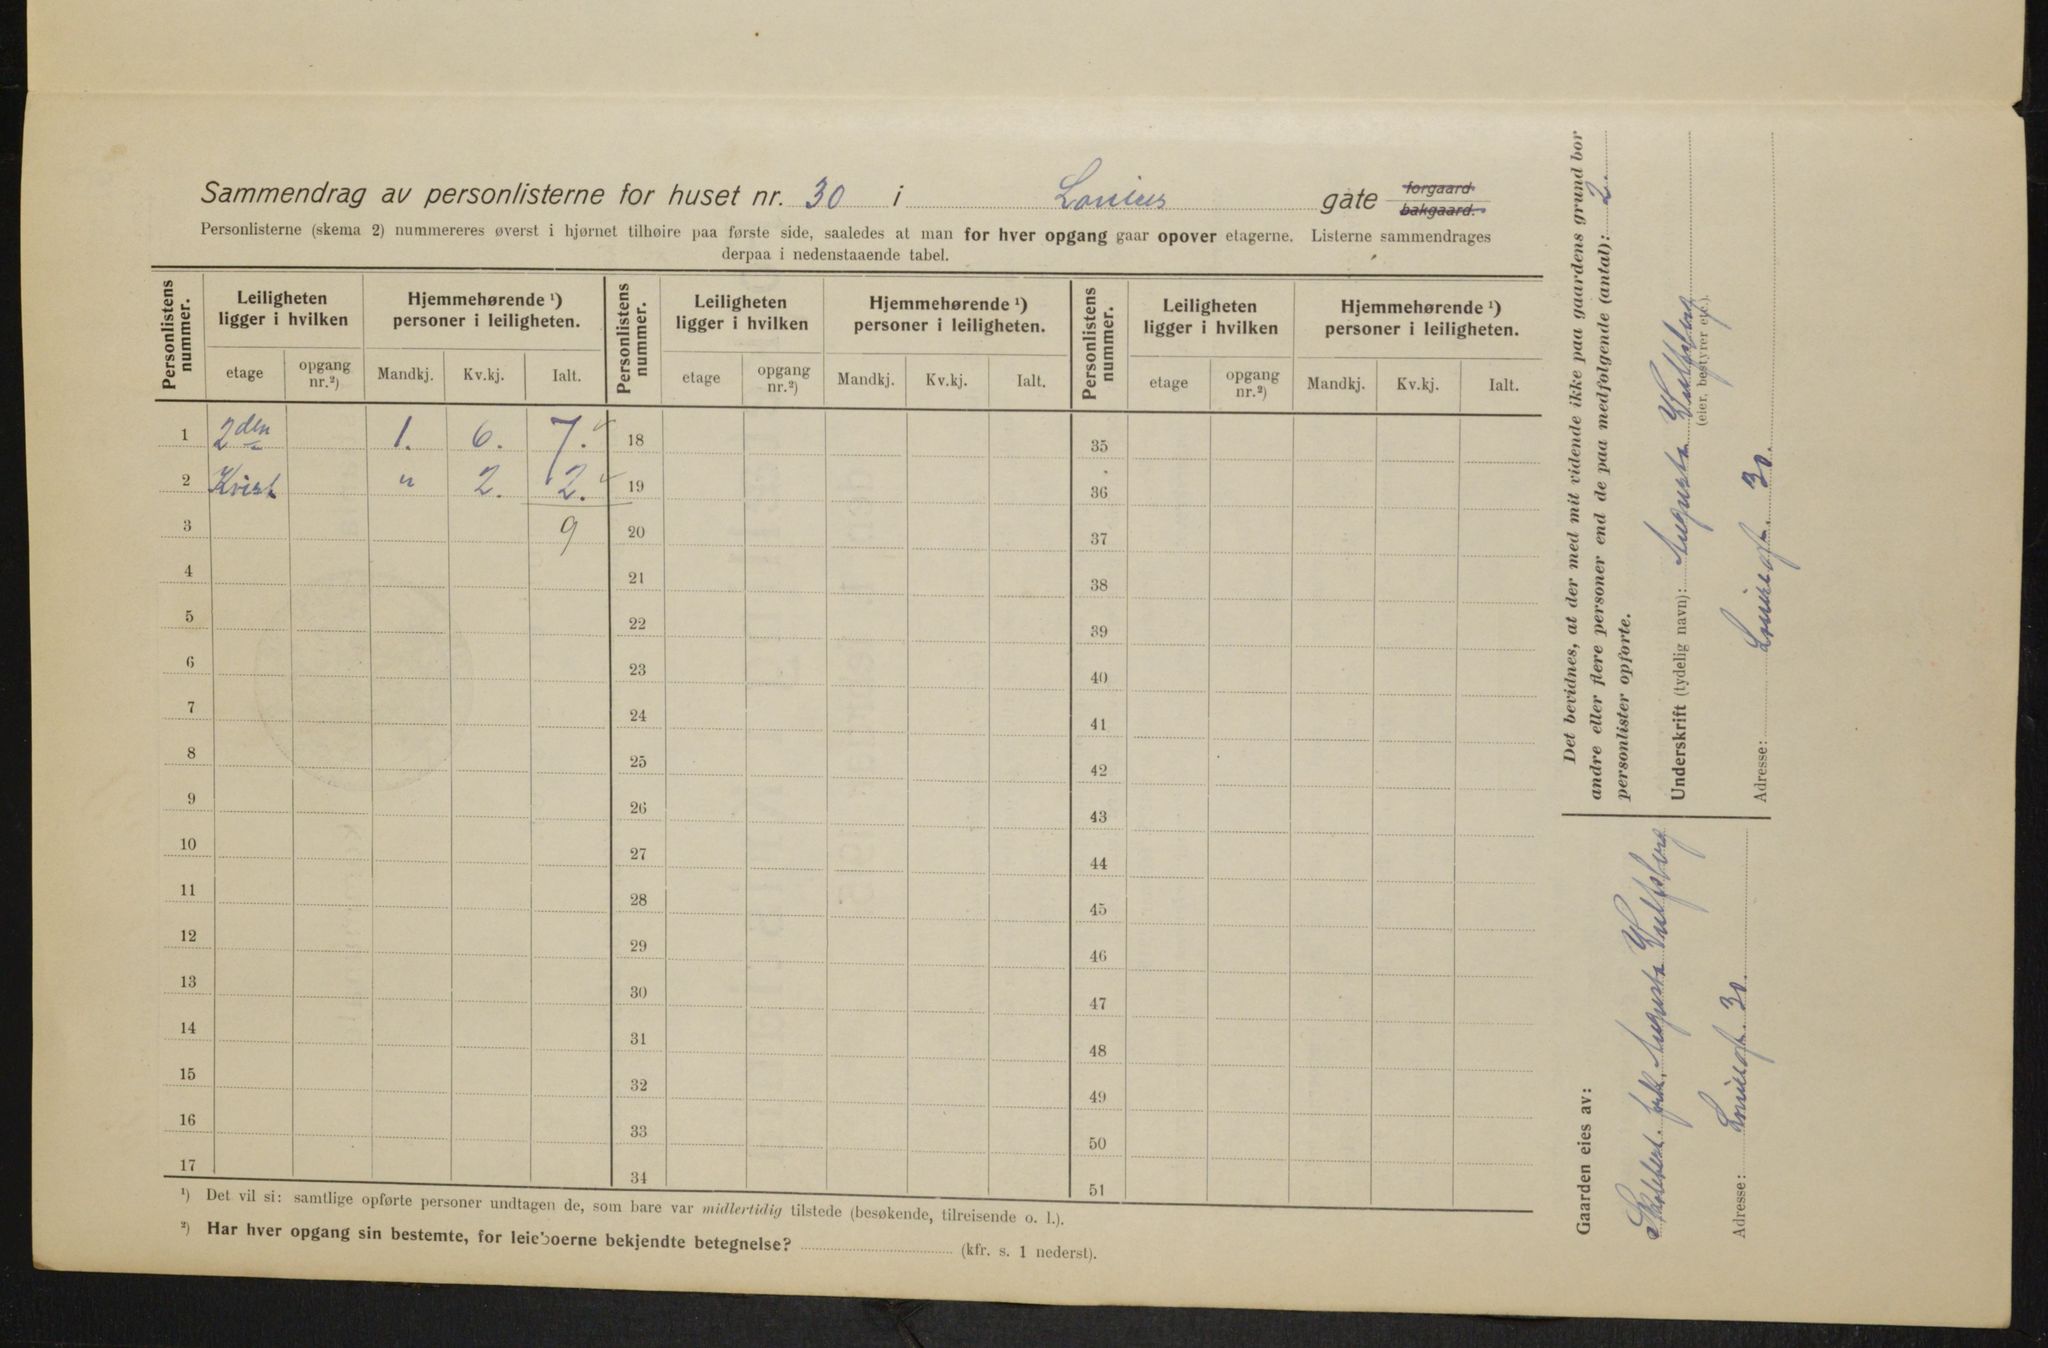 Sammendrag av personlisterne for huset nr. 30 i Louises gate forgaard. bakgaard.
Personlisterne (skema 2) nummereres øverst i hjørnet tilhøire paa første side, saaledes at man for hver opgang gaar opover etagerne. Listerne sammendrages
derpaa i nedenstaaende tabel.
Personlistens nummer. Leiligheten ligger i hvilken Hjemmehørende ¹) personer i leiligheten. Personlistens nummer. Leiligheten ligger i hvilken Hjemmehørende ¹) personer i leiligheten. Personlistens nummer. Leiligheten ligger i hvilken Hjemmehørende ¹) personer i leiligheten.
etage opgang nr.²) Mandkj. Kv.kj. Ialt. etage opgang nr.²) Mandkj. Kv.kj. Ialt. etage opgang nr.²) Mandkj. Kv.kj. Ialt.
1 2den 1. 6. 7. 18 35
2 Kvist " 2. 2. 19 36
3 9 20 37
4 21 38
5 22 39
6 23 40
7 24 41
8 25 42
9 26 43
10 27 44
11 28 45
12 29 46
13 30 47
14 31 48
15 32 49
16 33 50
17 34 51
¹) Det vil si: samtlige opførte personer undtagen de, som bare var midlertidig tilstede (besøkende, tilreisende o. l.).
²) Har hver opgang sin bestemte, for leieboerne bekjendte betegnelse? (kfr. s. 1 nederst).
Det bevidnes, at der med mit vidende ikke paa gaardens grund bor
andre eller flere personer end de paa medfølgende (antal): 2.
personlister opførte.
Underskrift (tydelig navn): Augusta Wulfsberg
(eier, bestyrer etc.).
Adresse: Louisesgt. 30.
Gaarden eies av:
frk. Augusta Wulfsberg
Adresse: Louisesgt. 30.